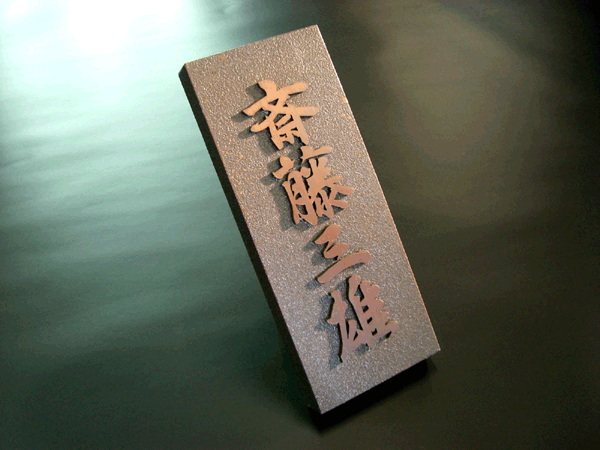 斎藤三雄